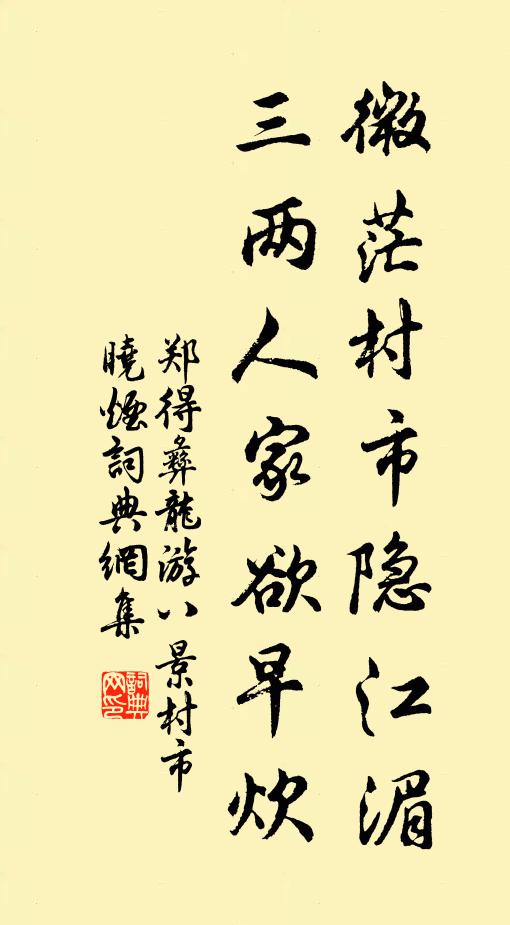 微茫村市隐江湄
三两人家欲早炊
郑得彝龍游八景村市
曉煙詞典網集
詞典网印